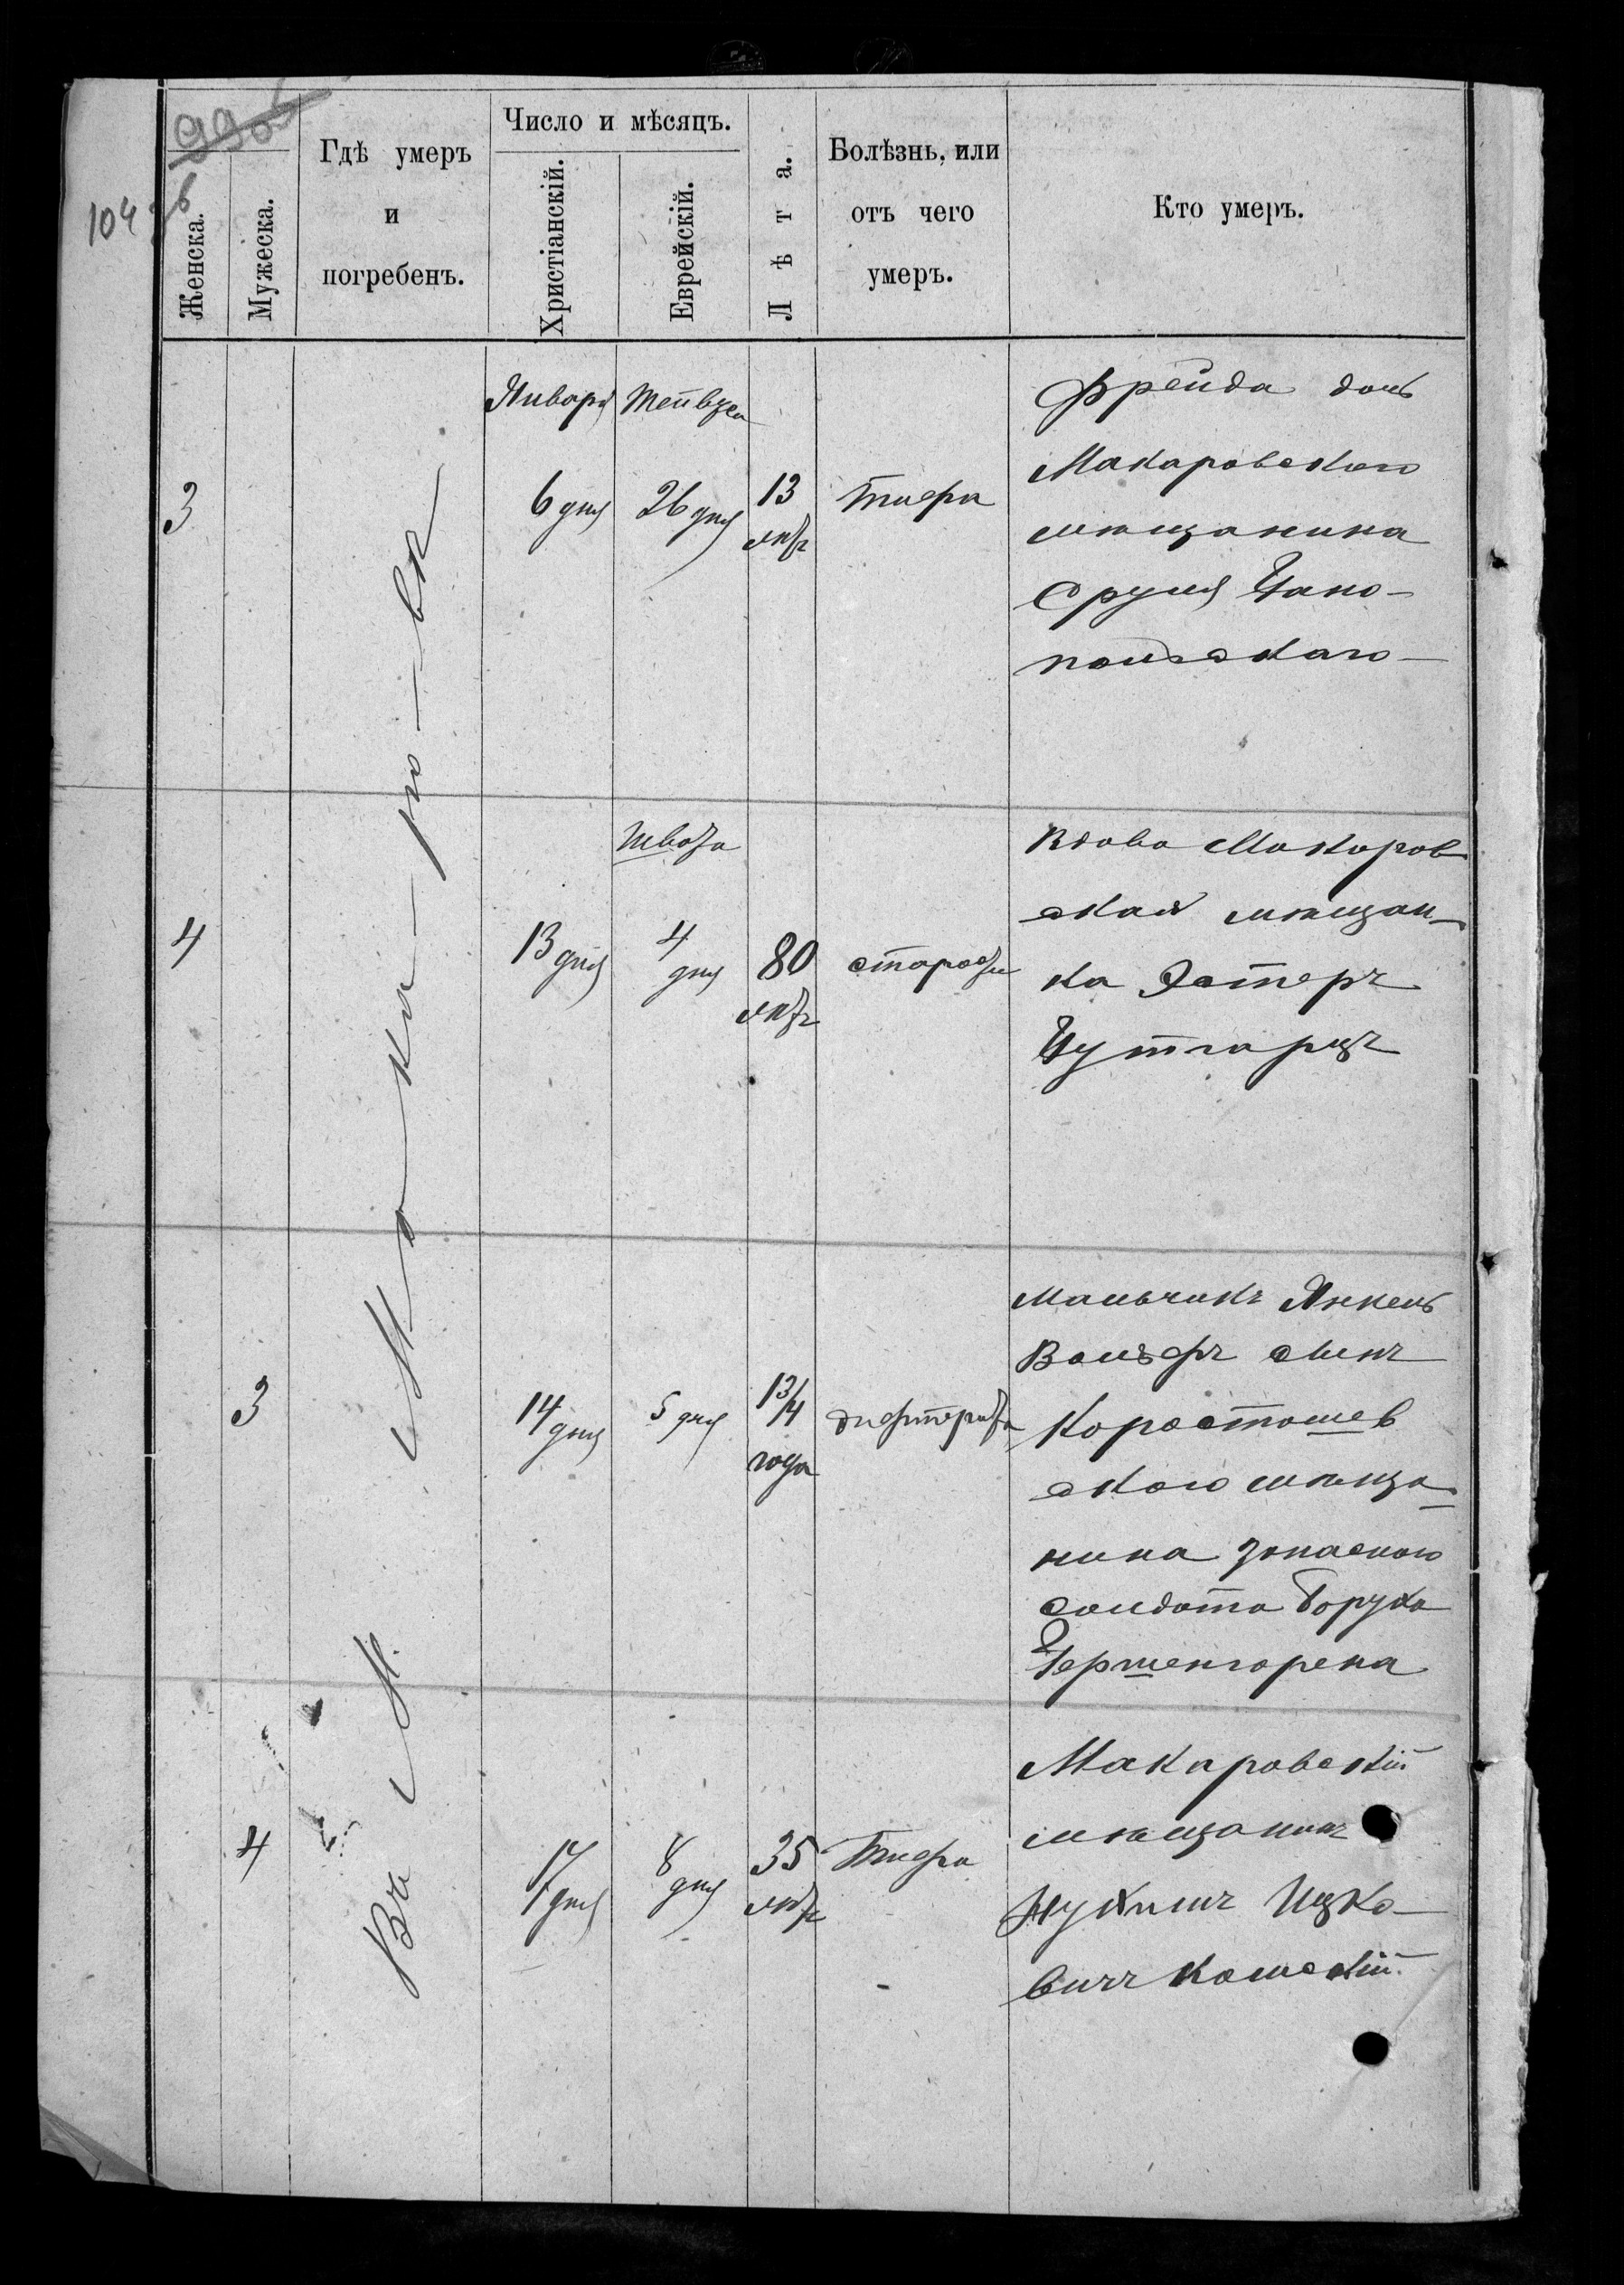 99об
104 зв
Женска.
Мужеска.
Гдѣ умеръ
и
погребенъ.
Число и мѣсяцъ.
Христіанскій.
Еврейскій.
Лѣта.
Болѣзнь, или
отъ чего
умеръ.
Кто умеръ.
Въ М. Макаровѣ
3
Января
6 дня
Тейвеса
26 дня
13
лѣтъ
Тифа
Фрейда дочь
Макаровскаго
мѣщанина
Сруля
4
13 дня
Швота
4
дня
80
лѣтъ
старости
Вдова Макаров
ская мѣщан-
ка Эстеръ
3
14 дня
5 дня
1 3/4
года
дифтерита
Мальчикъ Янкель
Вольфъ сынъ
Коростышев
скаго мѣща-
нина запасного
солдата Боруха
Гершенгорена
4
17 дня
8
дня
35
лѣтъ
Тифа
Макаровскій
мѣщанинъ
Нухимъ Ицко-
вичъ